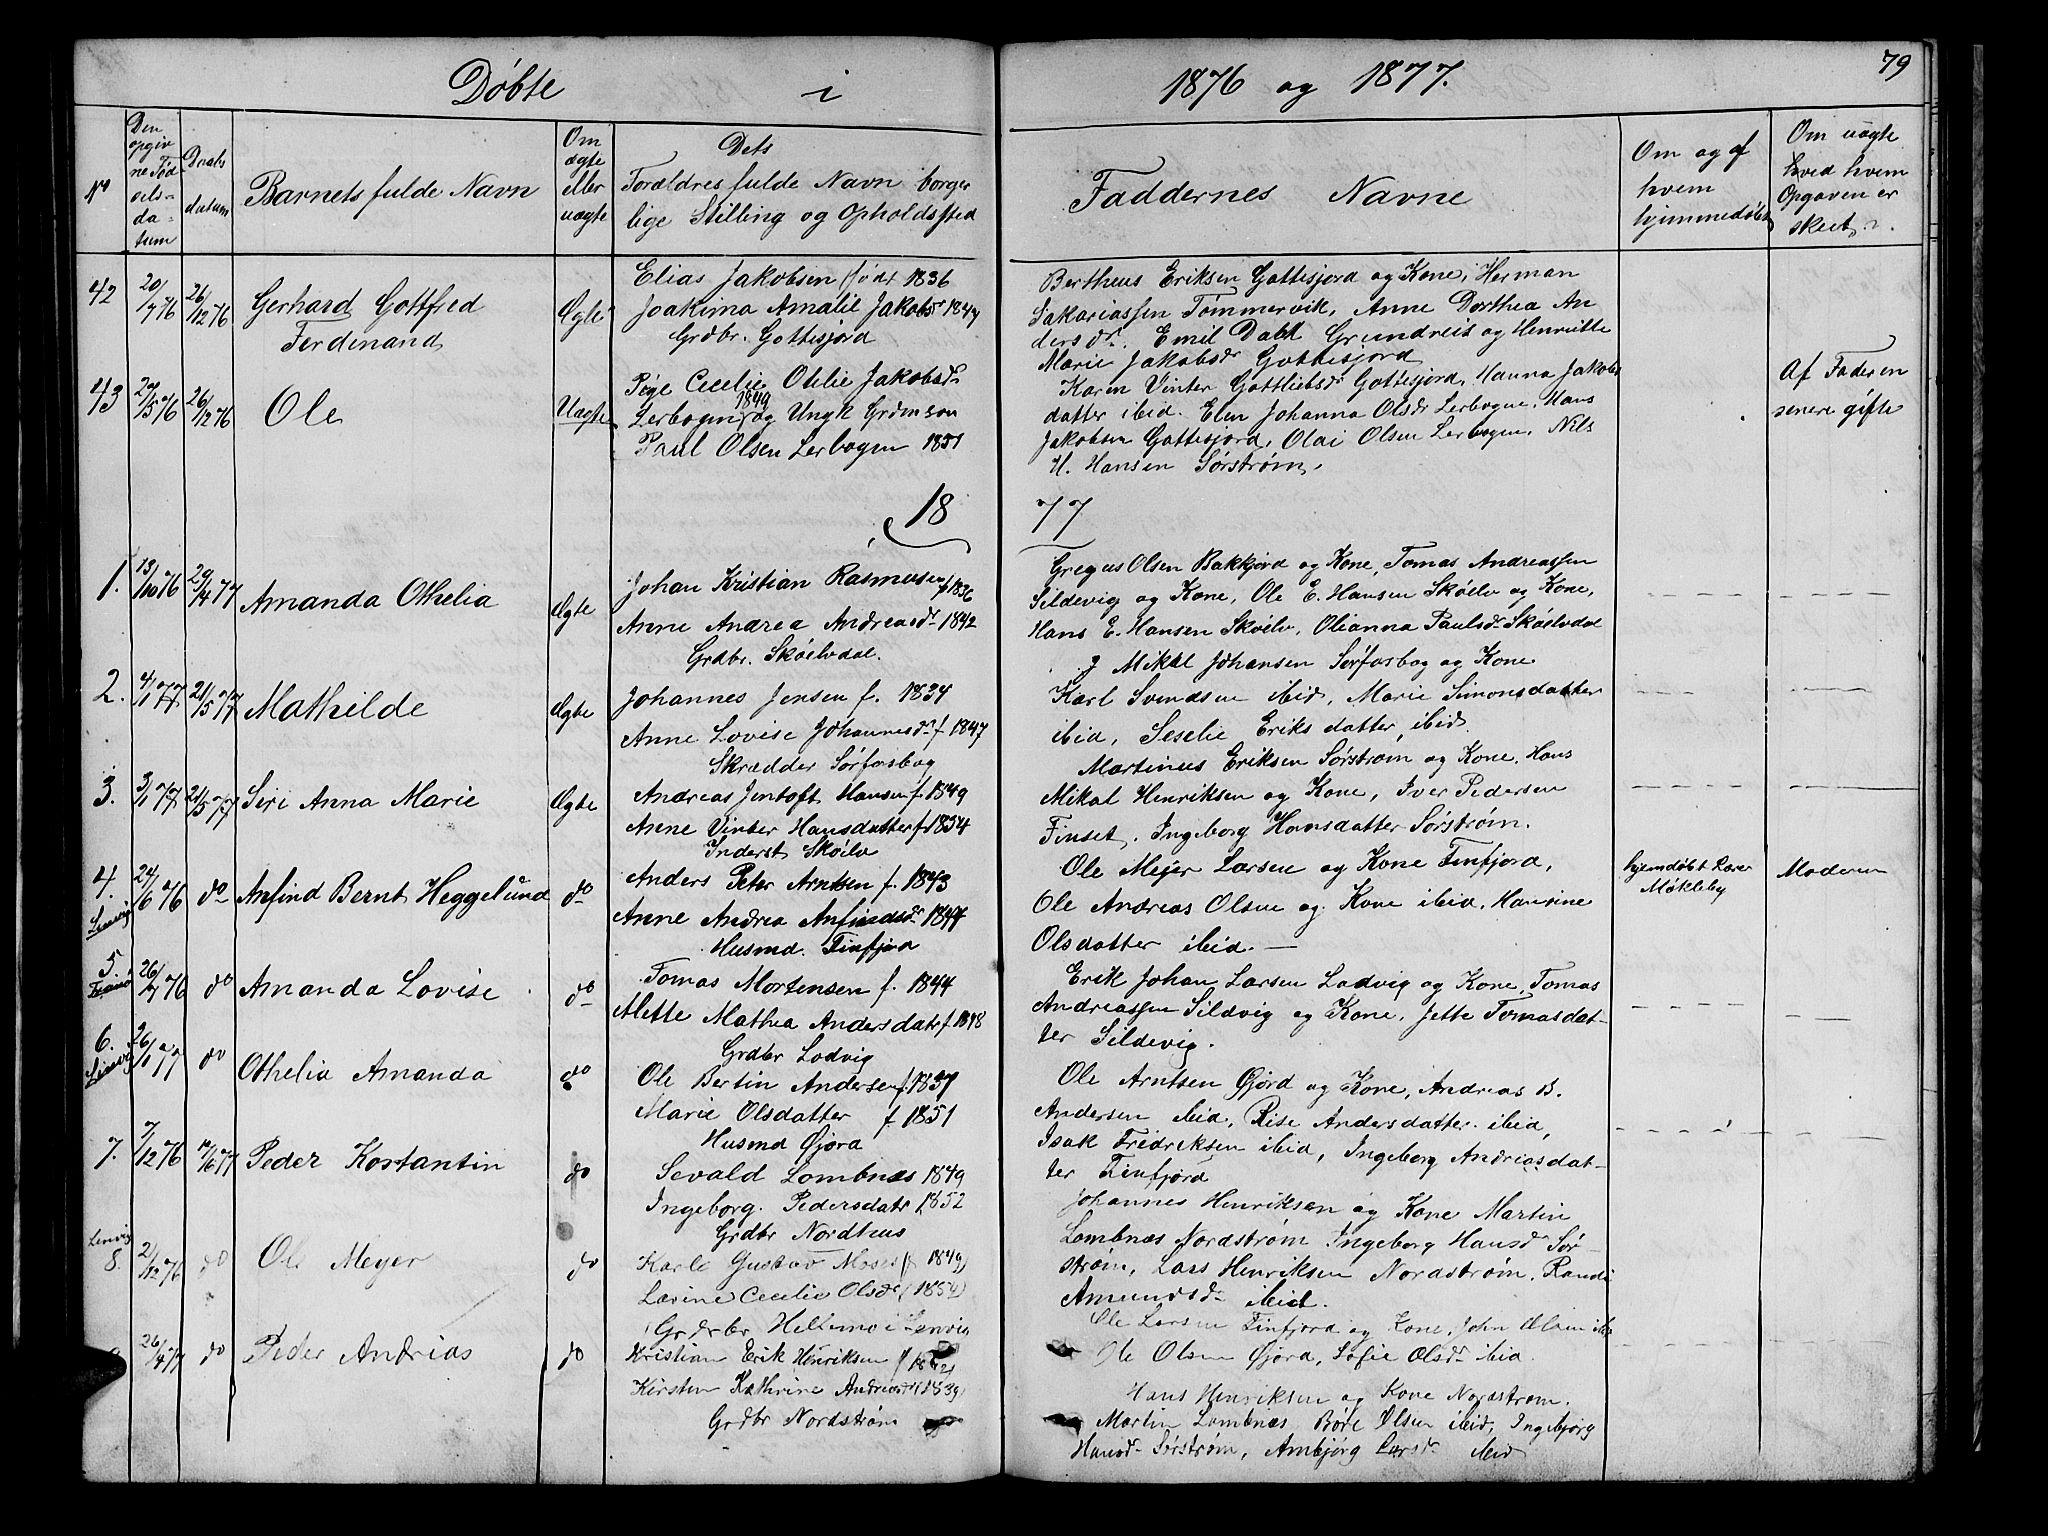 Døbte i 1876 og 1877.
79
No
Den opgivne Fødselsdatum
Daabsdatum
Barnets fulde Navn
Om ægte eller uægte
Dets
Forældres fulde Navn borger
lige Stilling og Opholdssted
Faddernes Navne
Om og af
hvem
hjemmedøbt
Om uægte
hved hvem
Opgaven er
skeet
42
20/7 76
26/12 76
Gerhard Gottfred
Ferdinand
Ægte
Elias Jakobsen født 1836
Joakima Amalie Jakobsdr 1844
Grdbr. Gottesjord
Bertheus Eriksen Gottesjord og Kone, Herman
Sakariassen Tømmervik, Anne Dorthea An
dersdr. Emil Dahl Grundreis og Henriette
Marie Jakobsdr Gottesjord
43
29/5 76
26/12 76
Ole
Uægte
Pige Cecelie Otelie Jakobsdr
1849
Lerbogen og Ungk Grdm son
Paul Olsen Lerbogen 1851
Karen Vinter Gottliebsdr Gottesjord, Hanna Jakobs
datter ibid. Elen Johanna Olsdr Lerbogne, Hans
Jakobsen Gottesjord, Olai Olsen Lerbogen, Nils
H. Hansen Sørstrøm,
Af Faderen
senere gifte
18 77
1.
13/10 76
29/4 77
Amanda Othelia
Ægte
Johan Kristian Rasmusen f 1836
Anne Andrea Andreasdr 1842
Grdbr. Skøelvdal.
Gregus Olsen Bakkjord og Kone, Tomas Andreassen
Sildevig og Kone, Ole E. Hansen Skøelv og Kone,
Hans E. Hansen Skøelv, Olianna Paulsdr Skøelvdal
2.
4/1 77
21/5 77
Mathilde
Ægte
Johannes Jensen f. 1834
Anne Lovise Johannesdr f 1847
Skrædder Sørfosbog
J Mikal Johansen Sørfosbog og Kone
Karl Svendsen ibid, Marie Simonsdatter
ibid, Seselie Eriksdatter, ibid.
3.
3/1 77
21/5 77
Siri Anna Marie
Ægte
Andreas Jentoft Hansen f. 1849
Anne Vinter Hansdatter f 1834
Inderst Skøelv
Martinus Eriksen Sørstrøm og Kone, Hans
Mikal Henriksen og Kone, Iver Pedersen
Finset, Ingeborg Hansdatter Sørstrøm.
4.
Lenvig
24/6 76
do
Anfind Bernt Heggelund
do
Anders Peter Arntsen f. 1843
Anne Andrea Anfindsdr 1844
Husmd. Finfjord
Ole Mejer Larsen og Kone Finfjord,
Ole Andreas Olsen og Kone ibid, Hansine
Olsdatter ibid. —
hjemdøbt Lærer
Møkleby
Moderen
5.
26/7 76
do
Amanda Lovise
do
Tomas Mortensen f. 1844
Mette Mathea Andersdatr f 1848
Grdbr Lodvig
Erik Johan Larsen Lodvig og Kone, Tomas
Andreassen Sildvig og Kone, Jette Tomasdat-
ter Sildevig.
6.
Lenvig
26/1 77
do
Othelia Amanda
do
Ole Bertin Andersen f. 1837
Marie Olsdatter f 1851
Husmd Øjord
Ole Arntsen Øjord og Kone, Andreas B.
Andersen ibid, Rise Andersdatter ibid,
Isak Fredriksen ibid, Ingeborg Andreasdat-
ter Finfjord
7.
7/12 76
17/6 77
Peder Kostantin
do
Sevald Lombnæs 1849
Ingeborg. Pedersdatr 1852
Grdbr Nordhus
Johannes Henriksen og Kone Martin
Lombnæs Nordstrøm Ingeborg Hansdr Sør-
strøm, Lars Henriksen Nordstrøm, Randi
Amundsdr ibid.
Lenvig
8.
2/12 76
do
Ole Meyer
do
Karle Gustav Moses f 1849
Lavine Cecelie Olsdr 1854
Grdbr Hellemo i Lenvig
Ole Larsen Finfjord og Kone, John Olsen ibid
Ole Olsen Øjord, Sofie Olsdr ibid.
26/4 77
do
Peder Andrias
do
Kristian Erik Henriksen
Kirsten Kathrine Andreasdr 1839
Grdbr Nordstrøm
Hans Henriksen og Kone Nordstrøm.
Martin Lombnæs Børe Olsen ibid, Ingebjørg
Hansdr Sørstrøm, Ambjørg Larsdr ibid